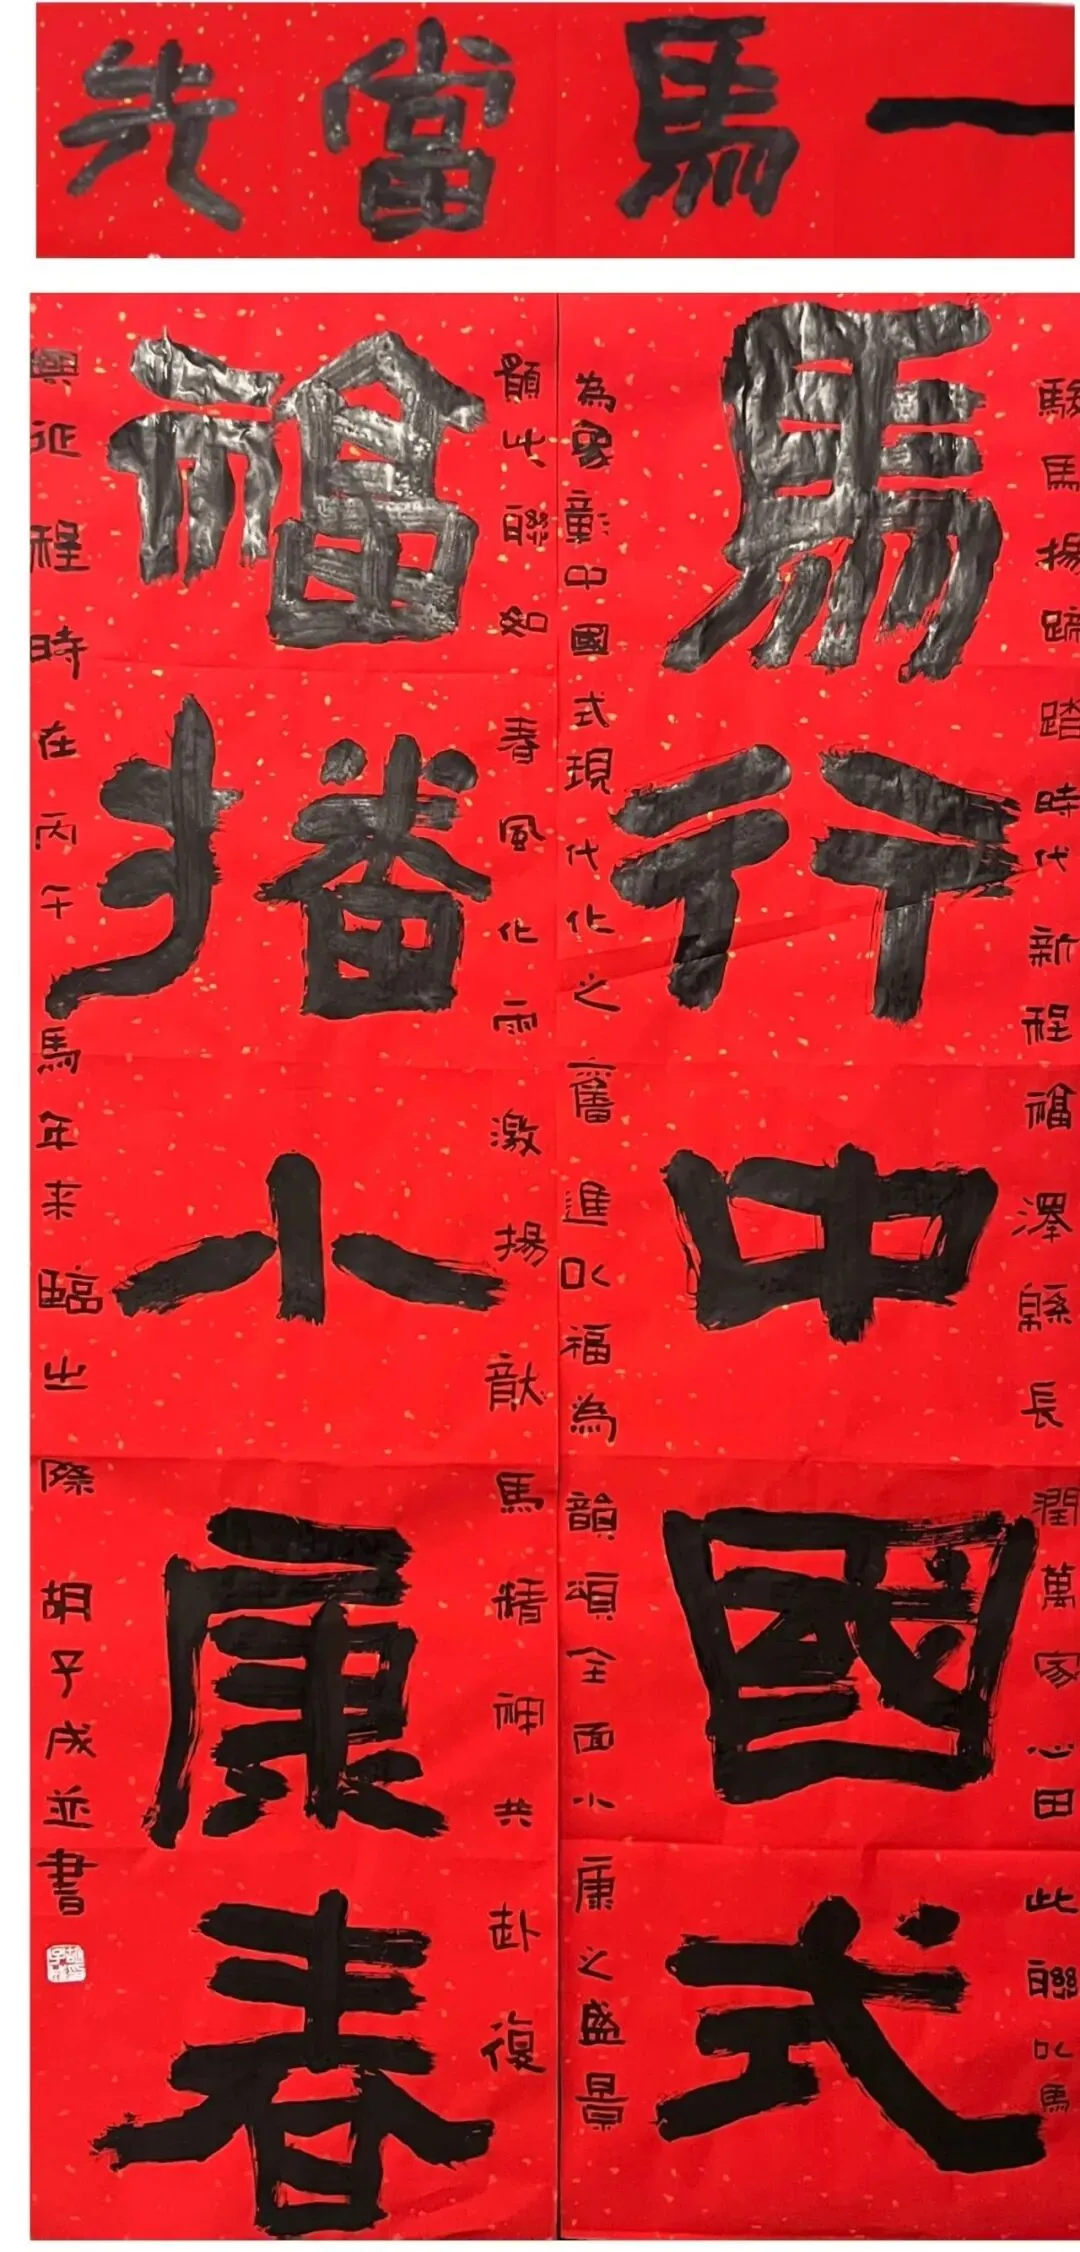 一馬當先
馬行中國式
福播小康春
駿馬揚蹄踏時代新程福澤緜長潤萬家心田此聯以馬
為象彰中國式現代化之奮進以福為韻頌全面小康之盛景
願此聯如春風化雨激揚龍馬精神共赴復
興征程時在丙午馬年来臨之際胡子成並書